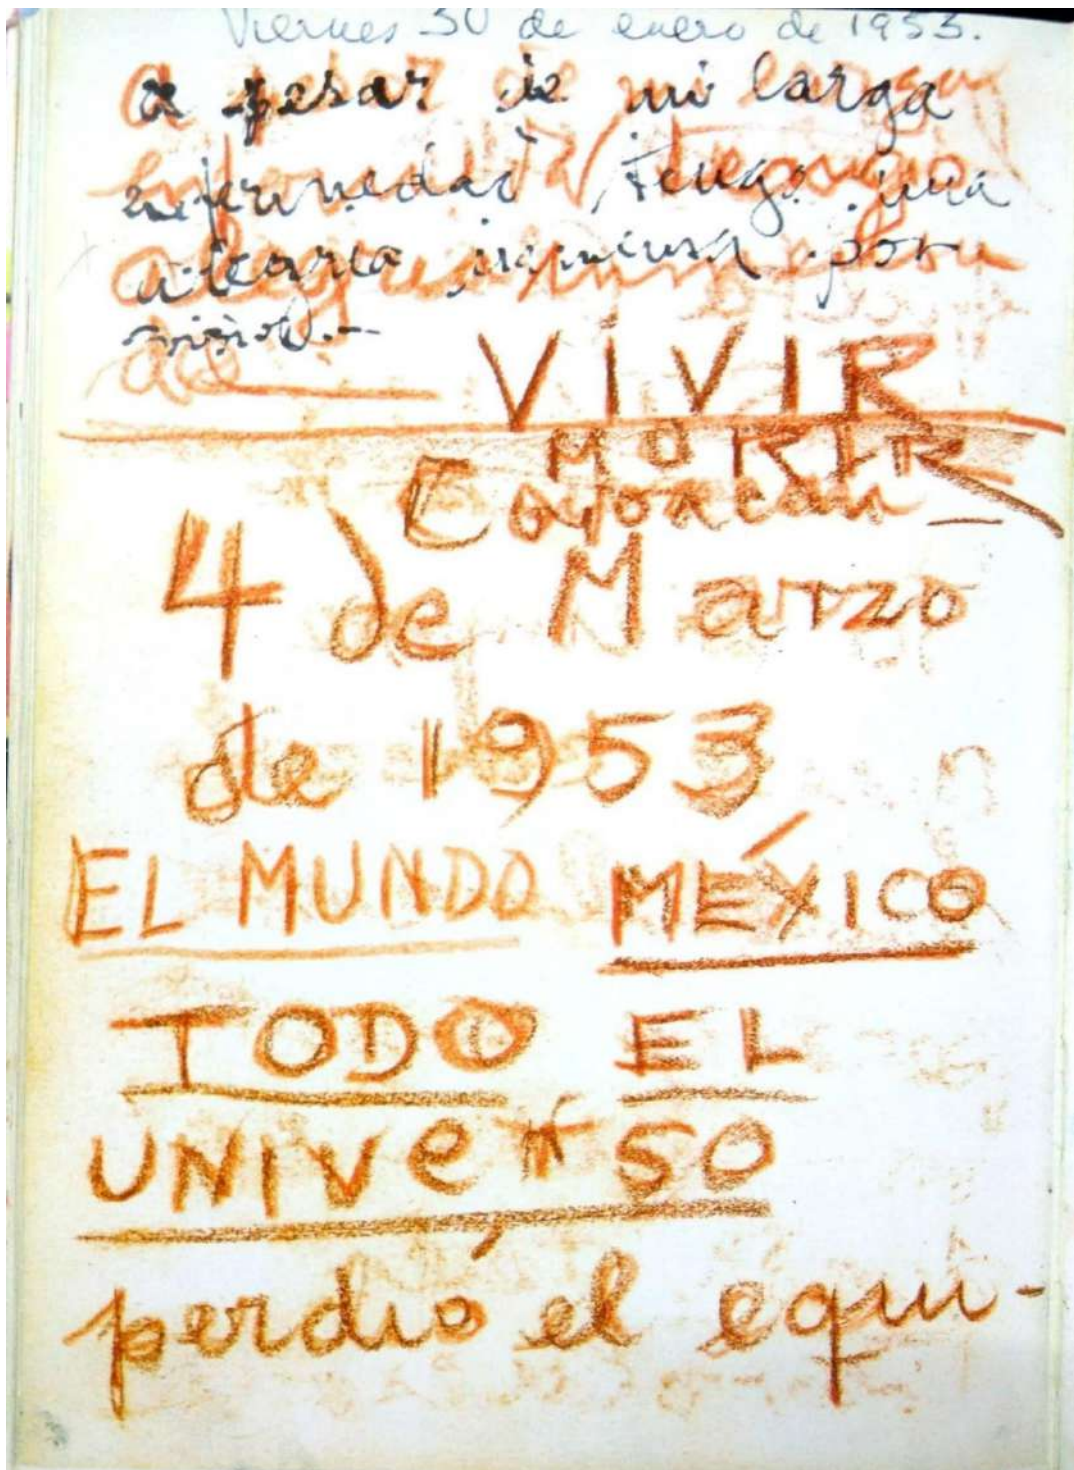 Viernes 30 de enero de 1953.
a pesar de mi larga
enfermedad tengo una
alegria inmensa por
VIVIR
MORIR
Coyoacán
4 de Marzo
de 1953
EL MUNDO MÉXICO
TODO EL
UNIVeRSO
perdió el equi-